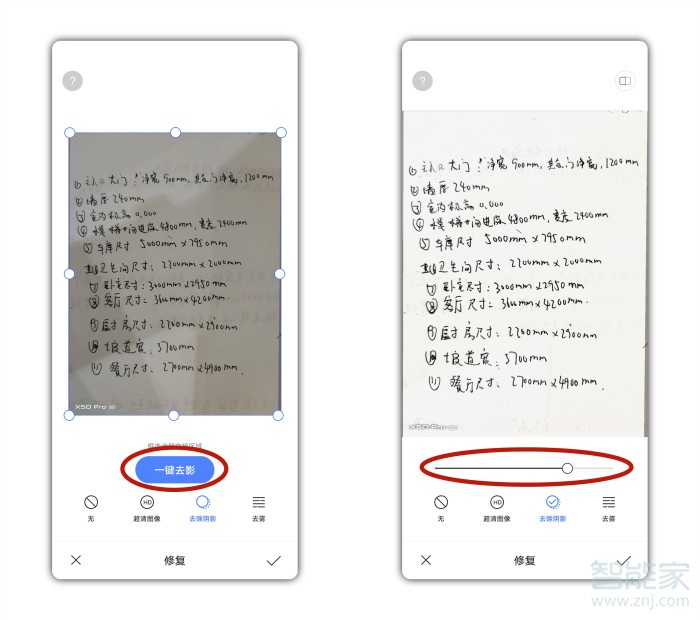 ?
① 主入口大门:净宽900mm,其余门净宽,1200mm
② 墙厚240mm
③ 室内标高0.000
④ 楼梯间进深4800mm,宽2400mm
⑤ 车库尺寸 5000mm×7950mm
卫生间尺寸:2700mm×2000mm
⑦ 卧室尺寸:3000mm×2950mm
⑧ 客厅尺寸:3600mm×4200mm.
⑨ 厨房尺寸:2200mm×2900mm
⑩ 坡道宽:3700mm
⑪ 餐厅尺寸:2700mm×4900mm.
X50 Pro 5G
一键去影
无
HD
超清图像
去除阴影
去雾
修复
?
① 主入口大门:净宽900mm,其余门净宽,1200mm
② 墙厚240mm
③ 室内标高0.000
④ 楼梯间进深4800mm,宽2400mm
⑤ 车库尺寸 5000mm×7950mm
卫生间尺寸:2700mm×2000mm
⑦ 卧室尺寸:3000mm×2950mm
⑧ 客厅尺寸:3600mm×4200mm.
⑨ 厨房尺寸:2200mm×2900mm
⑩ 坡道宽:3700mm
⑪ 餐厅尺寸:2700mm×4900mm.
X50 Pro
无
HD
超清图像
去除阴影
去雾
修复
智能家
www.znj.com